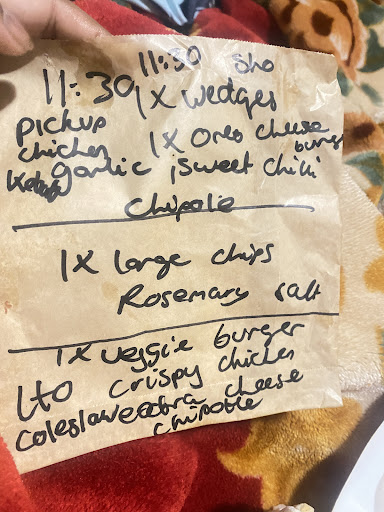 11:30 sho
11:30 1x wedges
pickup 1x oreo cheese
chicken burger
garlic sweet chilli
Chipotle
1x large chips
Rosemary salt
1x veggie burger
Lto crispy chicken
coleslaw extra cheese
chipotle